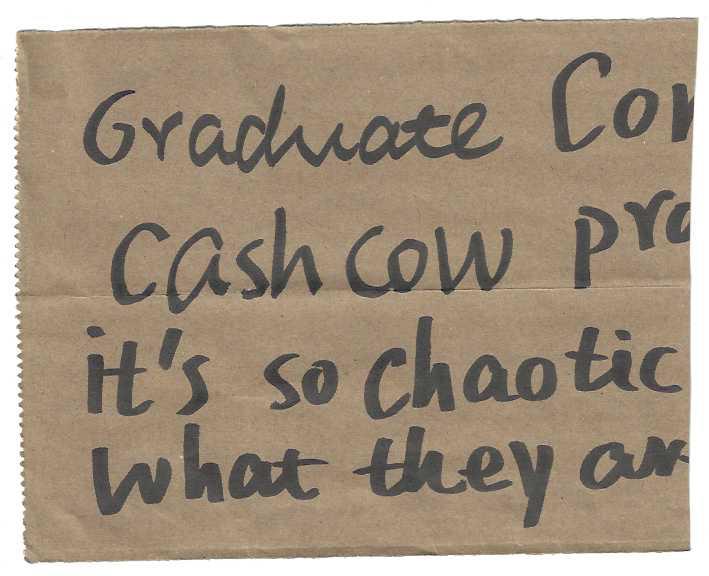 Graduate Cor
cash cow pro
it's so chaotic
what they ar